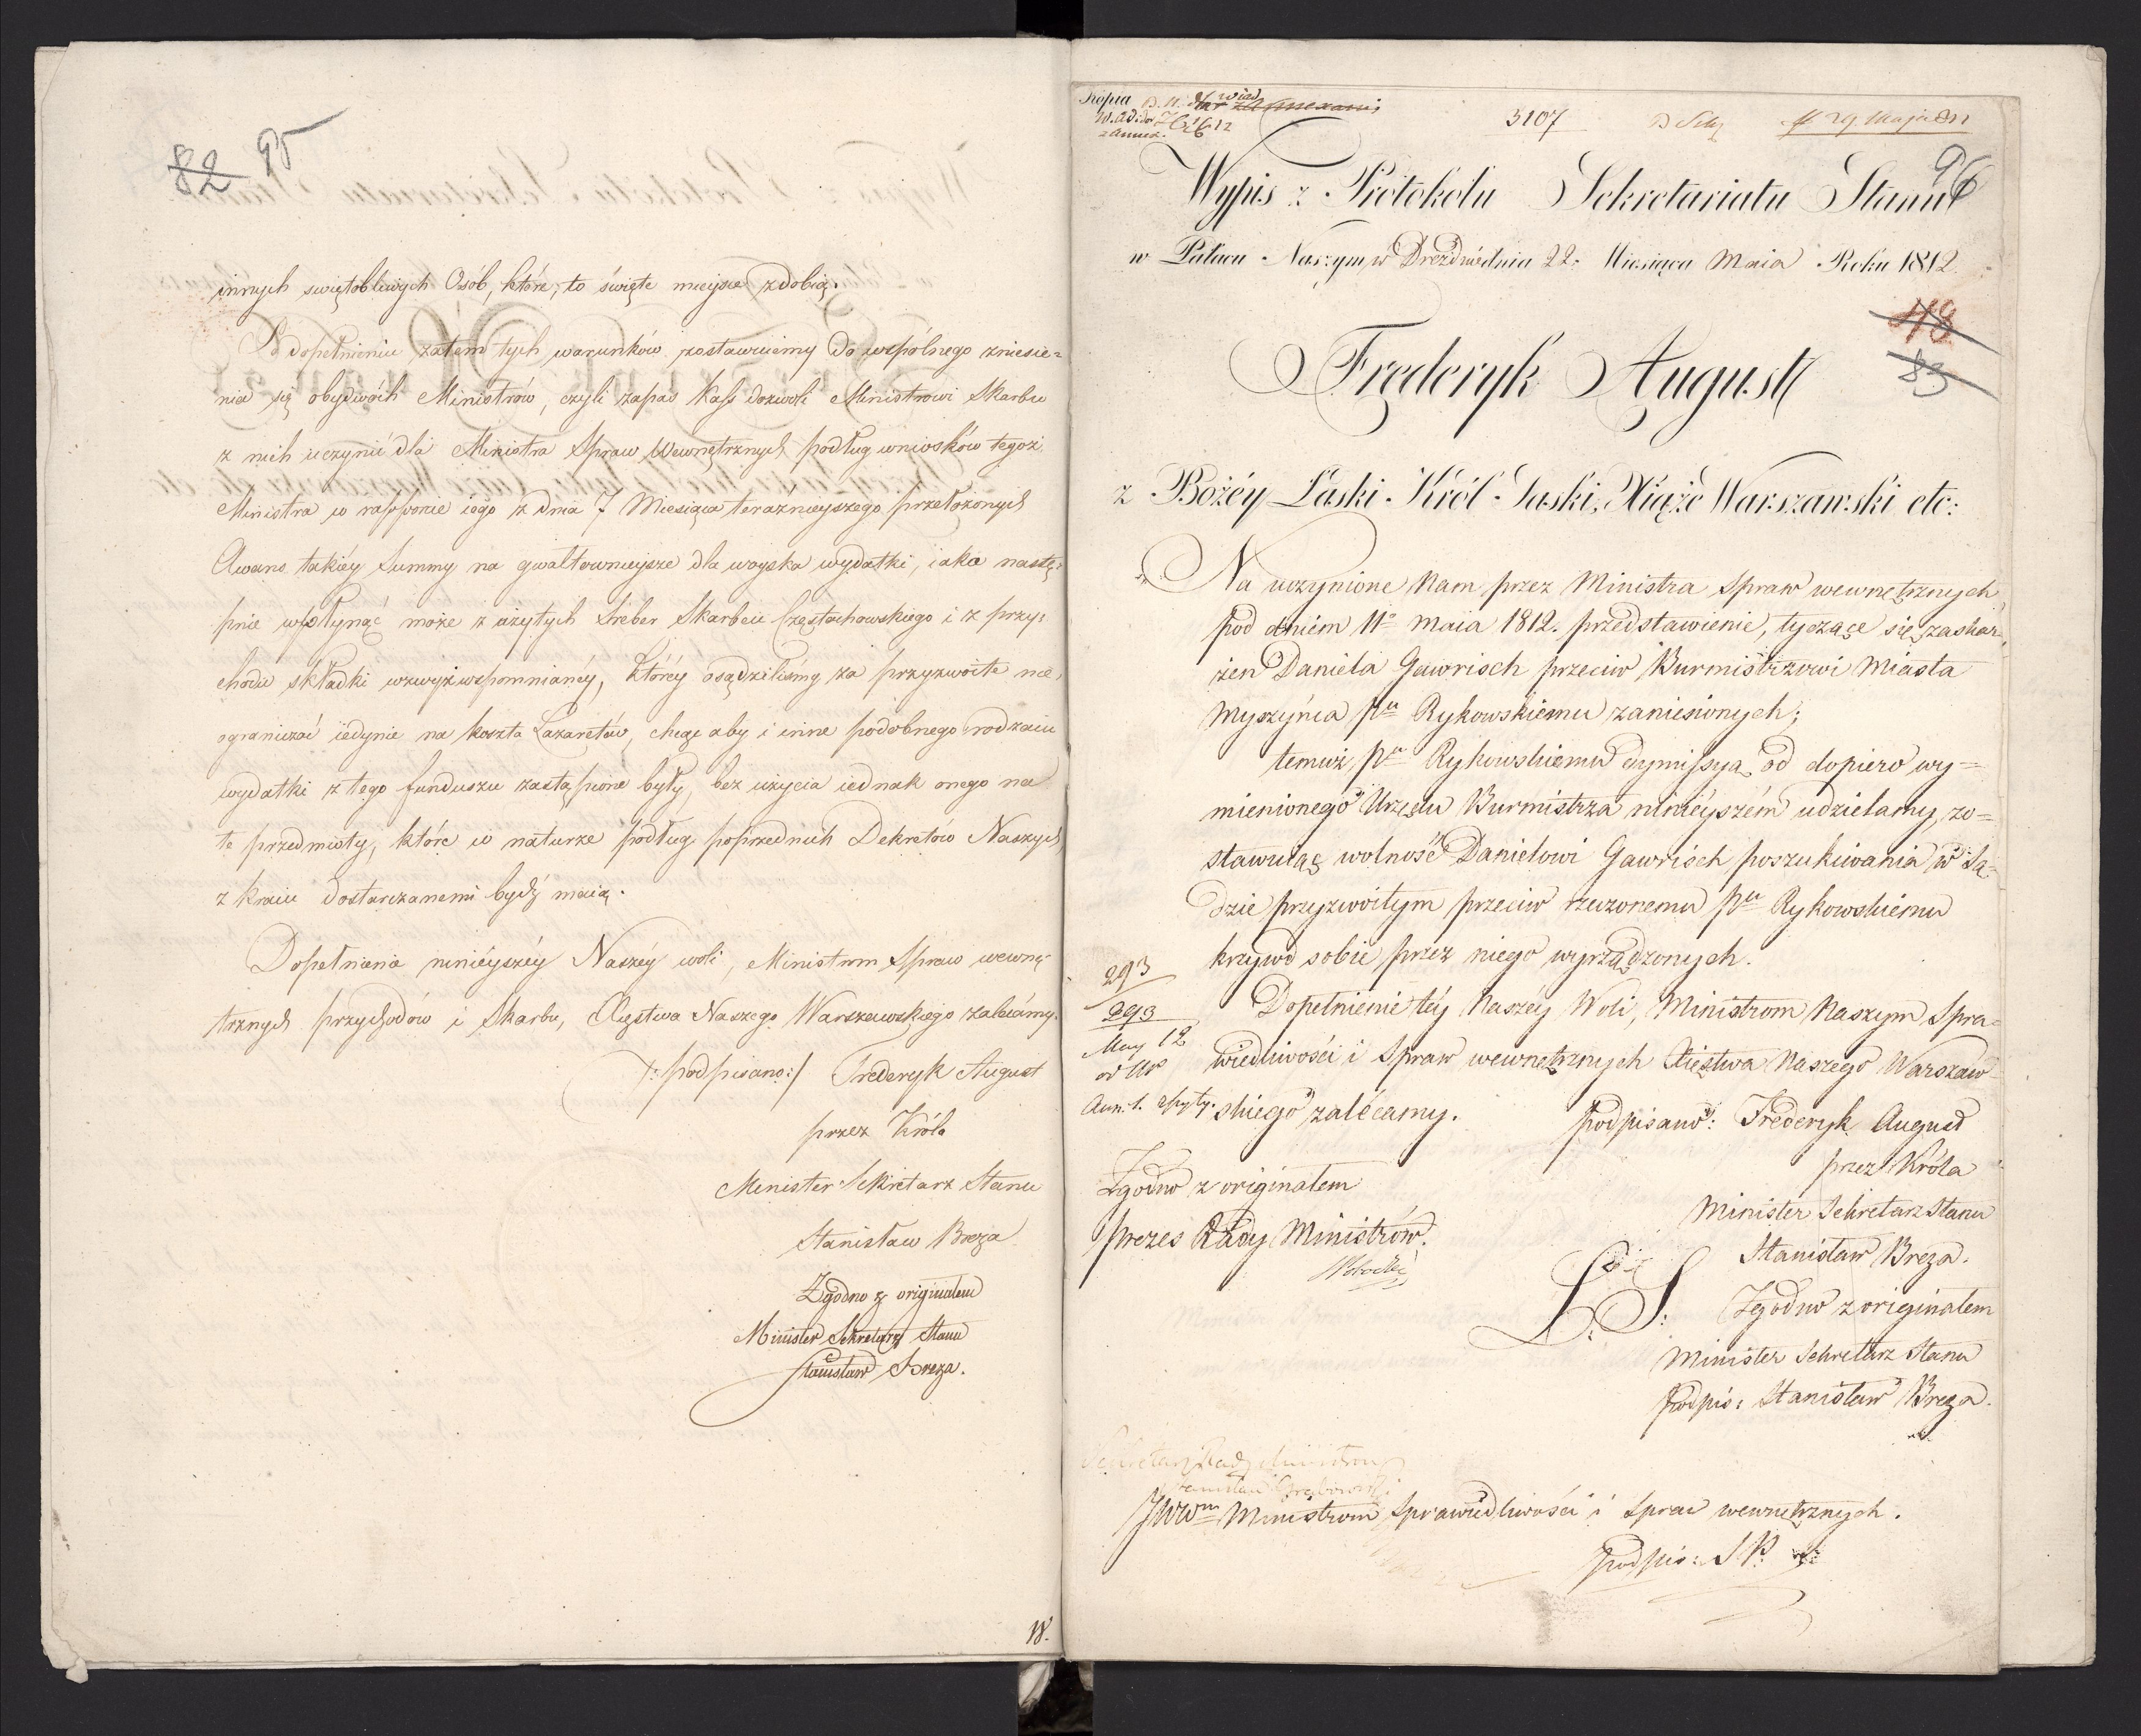 82 95
innych swiętobliwych Osób, które, to święte mieysce zdobią.
Po dopełnieniu zatem tych warunków zostawuiemy do wspólnego zniesie=
nia się obydwóch Ministrów, czyli zapas Kass dozwoli Ministrowi Skarbu
z nich uczynić dla Ministra Spraw Wewnętrznych podług wniosków tegoż
Ministra w rapporcie iego z dnia 7 Miesiąca teraznieyszego przełożonych
Awans takiéy Summy na gwałtownieysze dla woyska wydatki, iaka nastę=
pnie wpłynąć może z użytych Sreber Skarbcu Częstochowskiego i z przy=
chodu składki wzwyż wspomnianéy, którey osądziliśmy za przyzwoite nie
ograniczać iedynie na koszta Lazaretów, chcąc aby i inne podobnego rodzaiu
wydatki z tego funduszu zastąpione były, bez użycia iednak onego na
te przedmioty, które w naturze podług poprzednich Dekretów Naszych
z kraiu dostarczanemi bydź maią.
Dopełnienie ninieyszéy Naszéy woli, Ministrom Spraw wewnę=
trznych przychodów i Skarbu, Xięstwa Naszego Warszawskiego zalecámy.
/:podpisano:/ Frederyk August
przez Króla
Minister Sekretarz Stanu
Stanisław Breza
Zgodno z originałem
Minister Sekretarz Stanu
Stanisław Breza.
18.
Kopia
3107
29. Maja 812
96
Wypis z Protokołu Sekretariatu Stanu
w Pałacu Naszym w Dreźdnie dnia 22. Miesiąca Maia Roku 1812
48
83
Frederyk August
z Bożéy Łaski Król Saski, Xiąże Warszawski etc:
Na uczynione Nam przez Ministra Spraw wewnętrznych
pod dniem 11o maia 1812. przedstawienie, tyczące się zaskar=
żen Daniela Gawrisch przeciw Burmistrzowi Miasta
Myszyńca Pu Rykowskiemu zaniesionych;
temuż Pu Rykowskiemu dymissyą od dopiero wy=
mienionego Urzędu Burmistrza ninieyszém udzielamy, zo=
stawuiąc wolność Danielowi Gawrisch poszukiwania w Są=
dzie przyzwoitym przeciw rzeczonemu Pu Rykowskiemu
krzywd sobie przez niego wyrządzonych.
293
293
May 12
Dopełnienie téy Naszéy Woli, Ministrom Naszym Spra=
wiedliwości i Spraw wewnętrznych Xięstwa Naszego Warszaw=
skiego zalécamy.
podpisano: Frederyk August
przez Króla
Minister Sekretarz Stanu
Stanisław Breza.
Zgodno z originałem
Prezes Rady Ministrów.
L. S.
Zgodno z originałem
Minister Sekretarz Stanu
podpis: Stanisław Breza.
Sekretarz Rady Ministrów
Stanisław Grabowski
JWWm Ministrom Sprawiedliwości i Spraw wewnętrznych.
podpis: S. P.